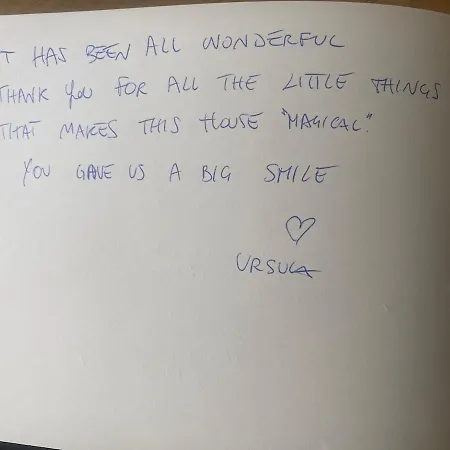 T HAS BEEN ALL WONDERFUL
THANK YOU FOR ALL THE LITTLE THINGS
THAT MAKES THIS HOUSE "MAGICAL".
YOU GAVE US A BIG SMILE
♡
URSULA